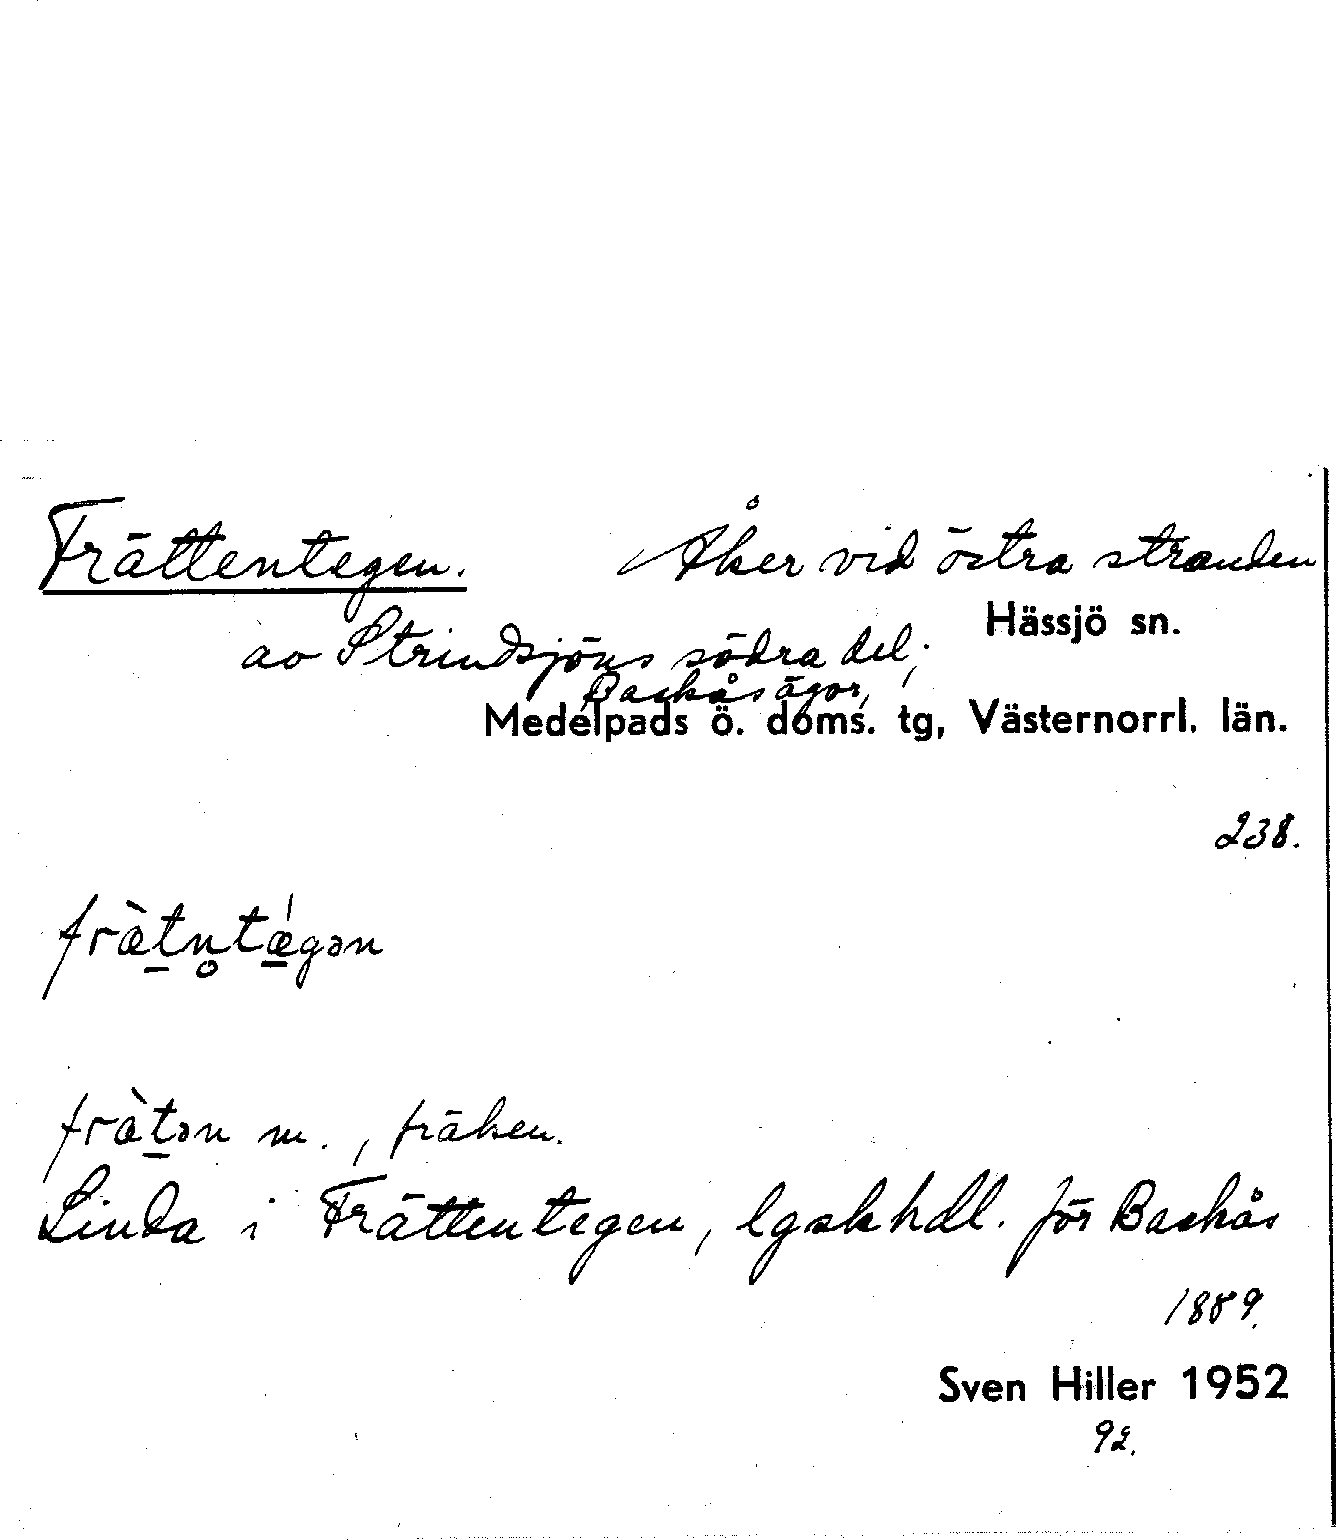 Frättentegen. Åker vid östra stranden
Hässjö sn.
av Strindsjöns södra del;
Backås ägor,
Medelpads ö. doms. tg, Västernorrl. län.
238.
fræ̀tn̥tǽgən
fræ̀tən m., fräken.
Linda i Frättentegen, lgskhdl. för Backås
1889.
Sven Hiller 1952
92.